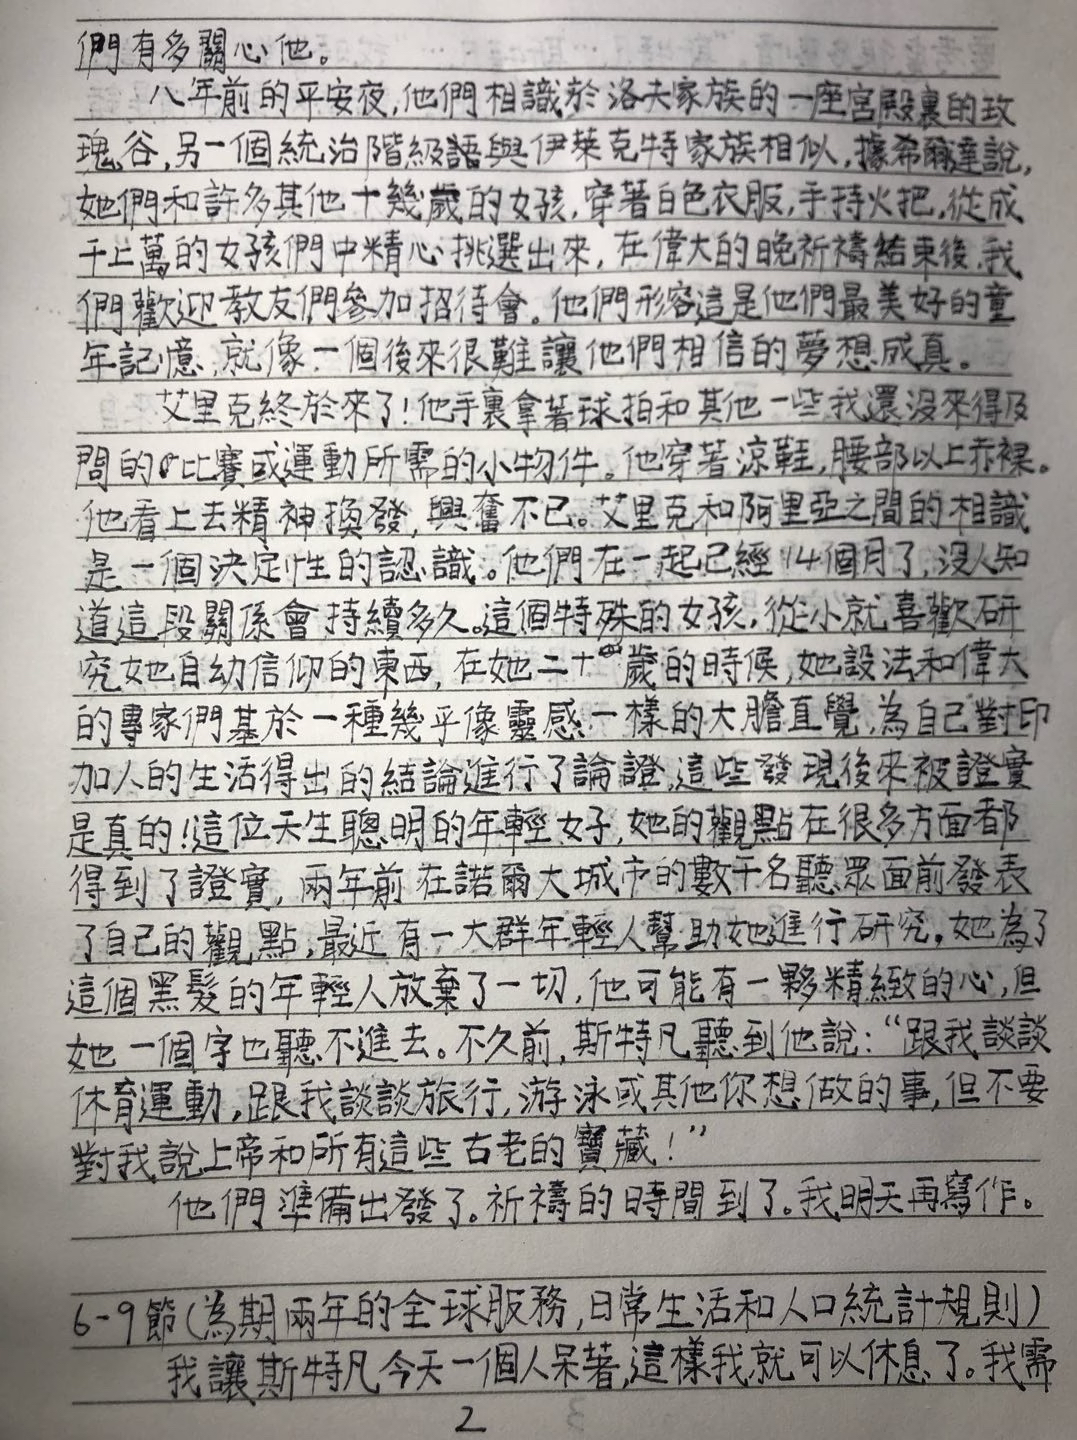 們有多關心他。
八年前的平安夜,他們相識於洛夫家族的一座宮殿裏的玫
瑰谷,另一個統治階級語與伊萊克特家族相似,據希爾達說,
她們和許多其他十幾歲的女孩,穿著白色衣服,手持火把,從成
千上萬的女孩們中精心挑選出來,在偉大的晚祈禱結束後,我
們歡迎教友們參加招待會。他們形容這是他們最美好的童
年記憶,就像一個後來很難讓他們相信的夢想成真。
艾里克終於來了!他手裏拿著球拍和其他一些我還沒來得及
問的比賽或運動所需的小物件。他穿著涼鞋,腰部以上赤裸。
他看上去精神換發,興奮不已。艾里克和阿里亞之間的相識
是一個決定性的認識。他們在一起已經14個月了,沒人知
道這段關係會持續多久。這個特殊的女孩,從小就喜歡研
究她自幼信仰的東西,在她二十四歲的時候,她設法和偉大
的專家們基於一種幾乎像靈感一樣的大膽直覺,為自己對印
加人的生活得出的結論進行了論證,這些發現後來被證實
是真的!這位天生聰明的年輕女子,她的觀點在很多方面都
得到了證實,兩年前在諾爾大城市的數千名聽眾面前發表
了自己的觀點,最近有一大群年輕人幫助她進行研究。她為了
這個黑髮的年輕人放棄了一切,他可能有一夥精緻的心,但
她一個字也聽不進去。不久前,斯特凡聽到他說:“跟我談談
体育運動,跟我談談旅行,游泳或其他你想做的事,但不要
對我說上帝和所有這些古老的寶藏!”
他們準備出發了。祈禱的時間到了。我明天再寫作。
6-9節(為期兩年的全球服務,日常生活和人口統計規則)
我讓斯特凡今天一個人呆著,這樣我就可以休息了。我需
2